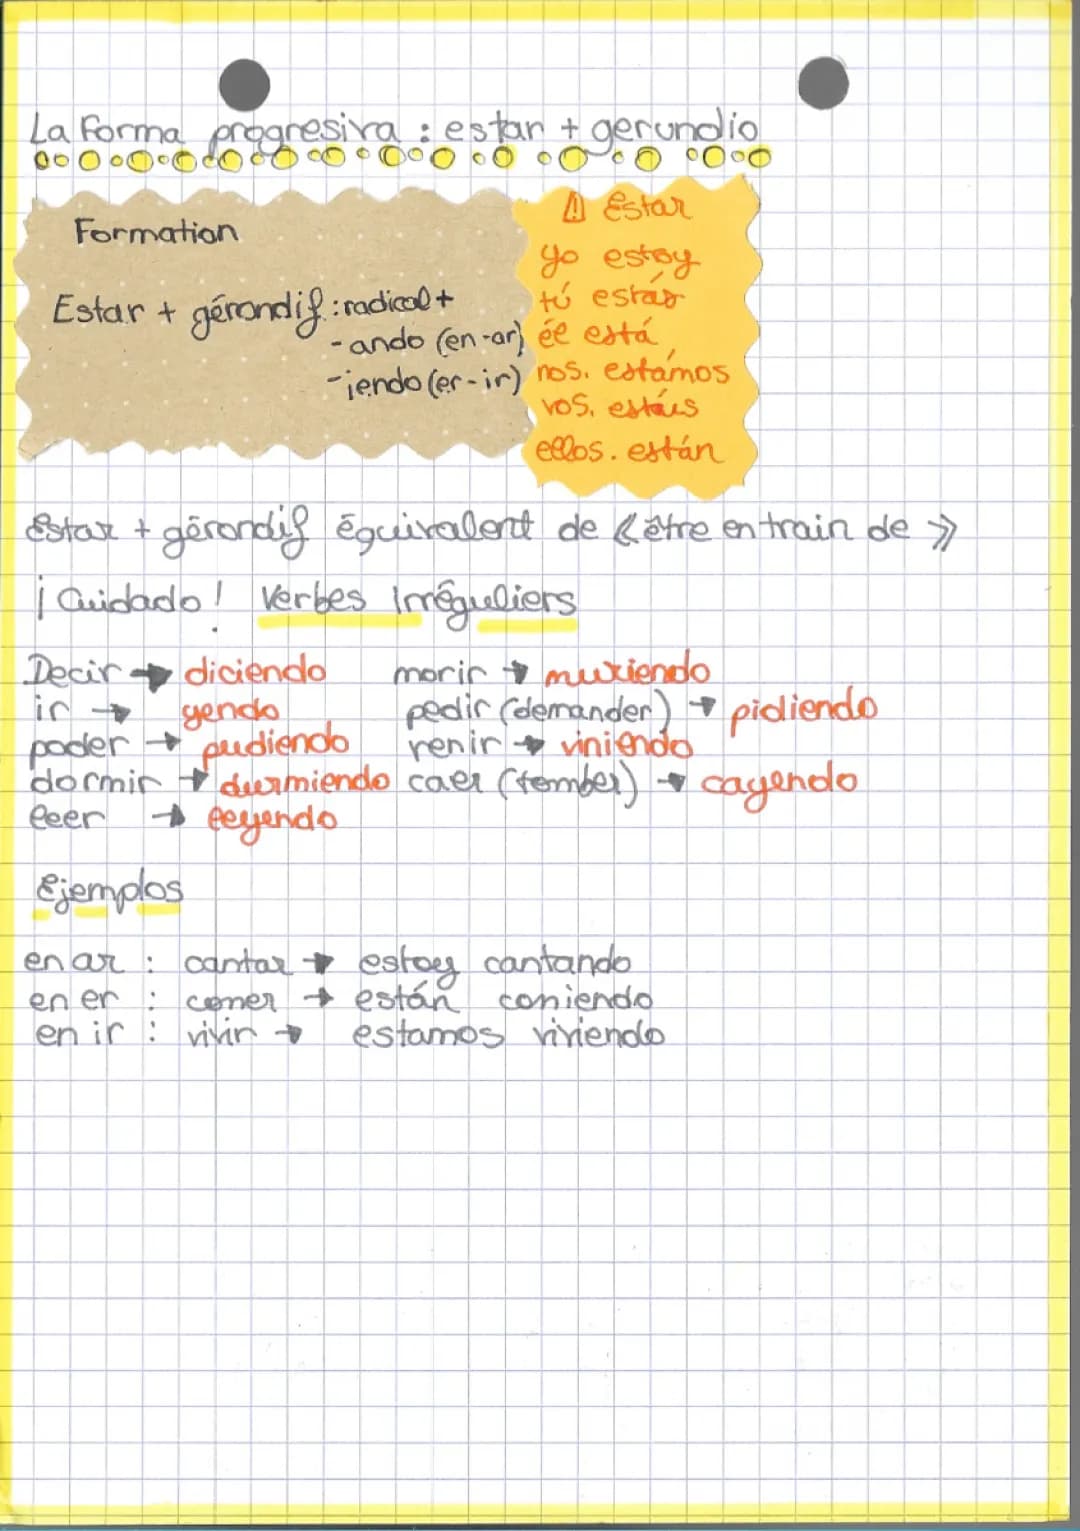 La forma progresiva : estar + gerundio
Formation
Estar + gérondif : radical +
- ando (en -ar)
- iendo (er - ir)
⚠ Estar
yo estoy
tú estás
él está
nos. estámos
vos. estáis
ellos. están
Estar + gérondif équivalent de « être en train de »
¡ Cuidado ! Verbes Irréguliers
Decir → diciendo morir → muriendo
ir → yendo pedir (demander) → pidiendo
poder → pudiendo venir → viniendo
dormir → durmiendo caer (tomber) → cayendo
leer → leyendo
Ejemplos
en ar : cantar → estoy cantando
en er : comer → están comiendo
en ir : vivir → estamos viviendo